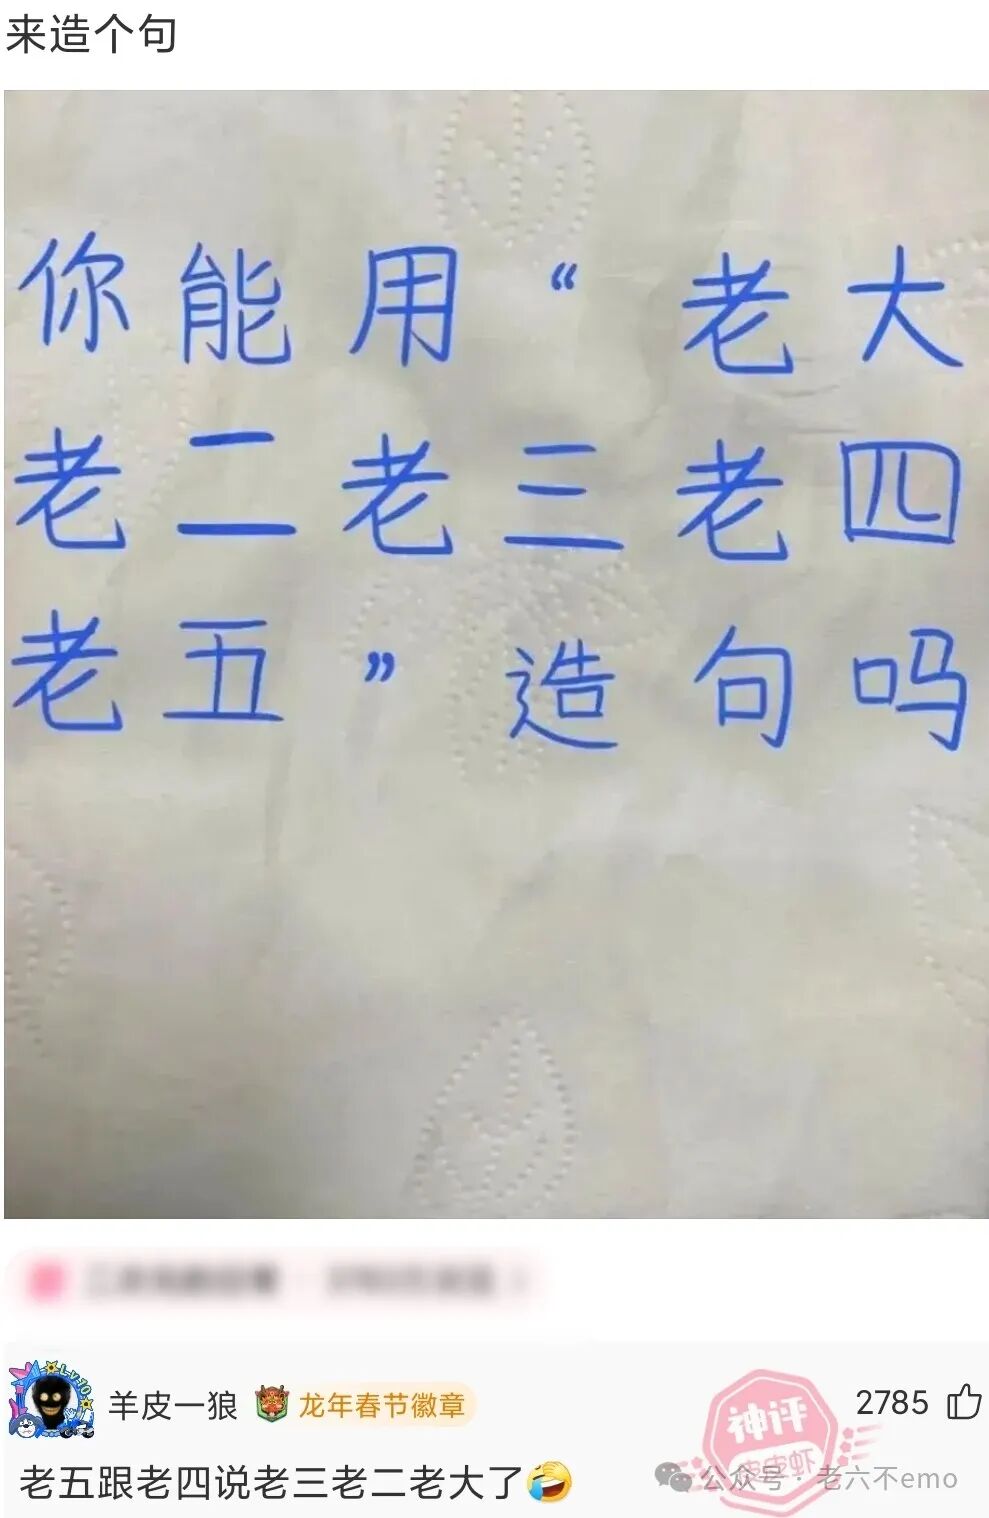 来造个句
你能用“老大
老二老三老四
老五”造句吗
羊皮一狼 龙年春节徽章 2785
老五跟老四说老三老二老大了🤣
神评
皮皮虾
公众号·老六不emo